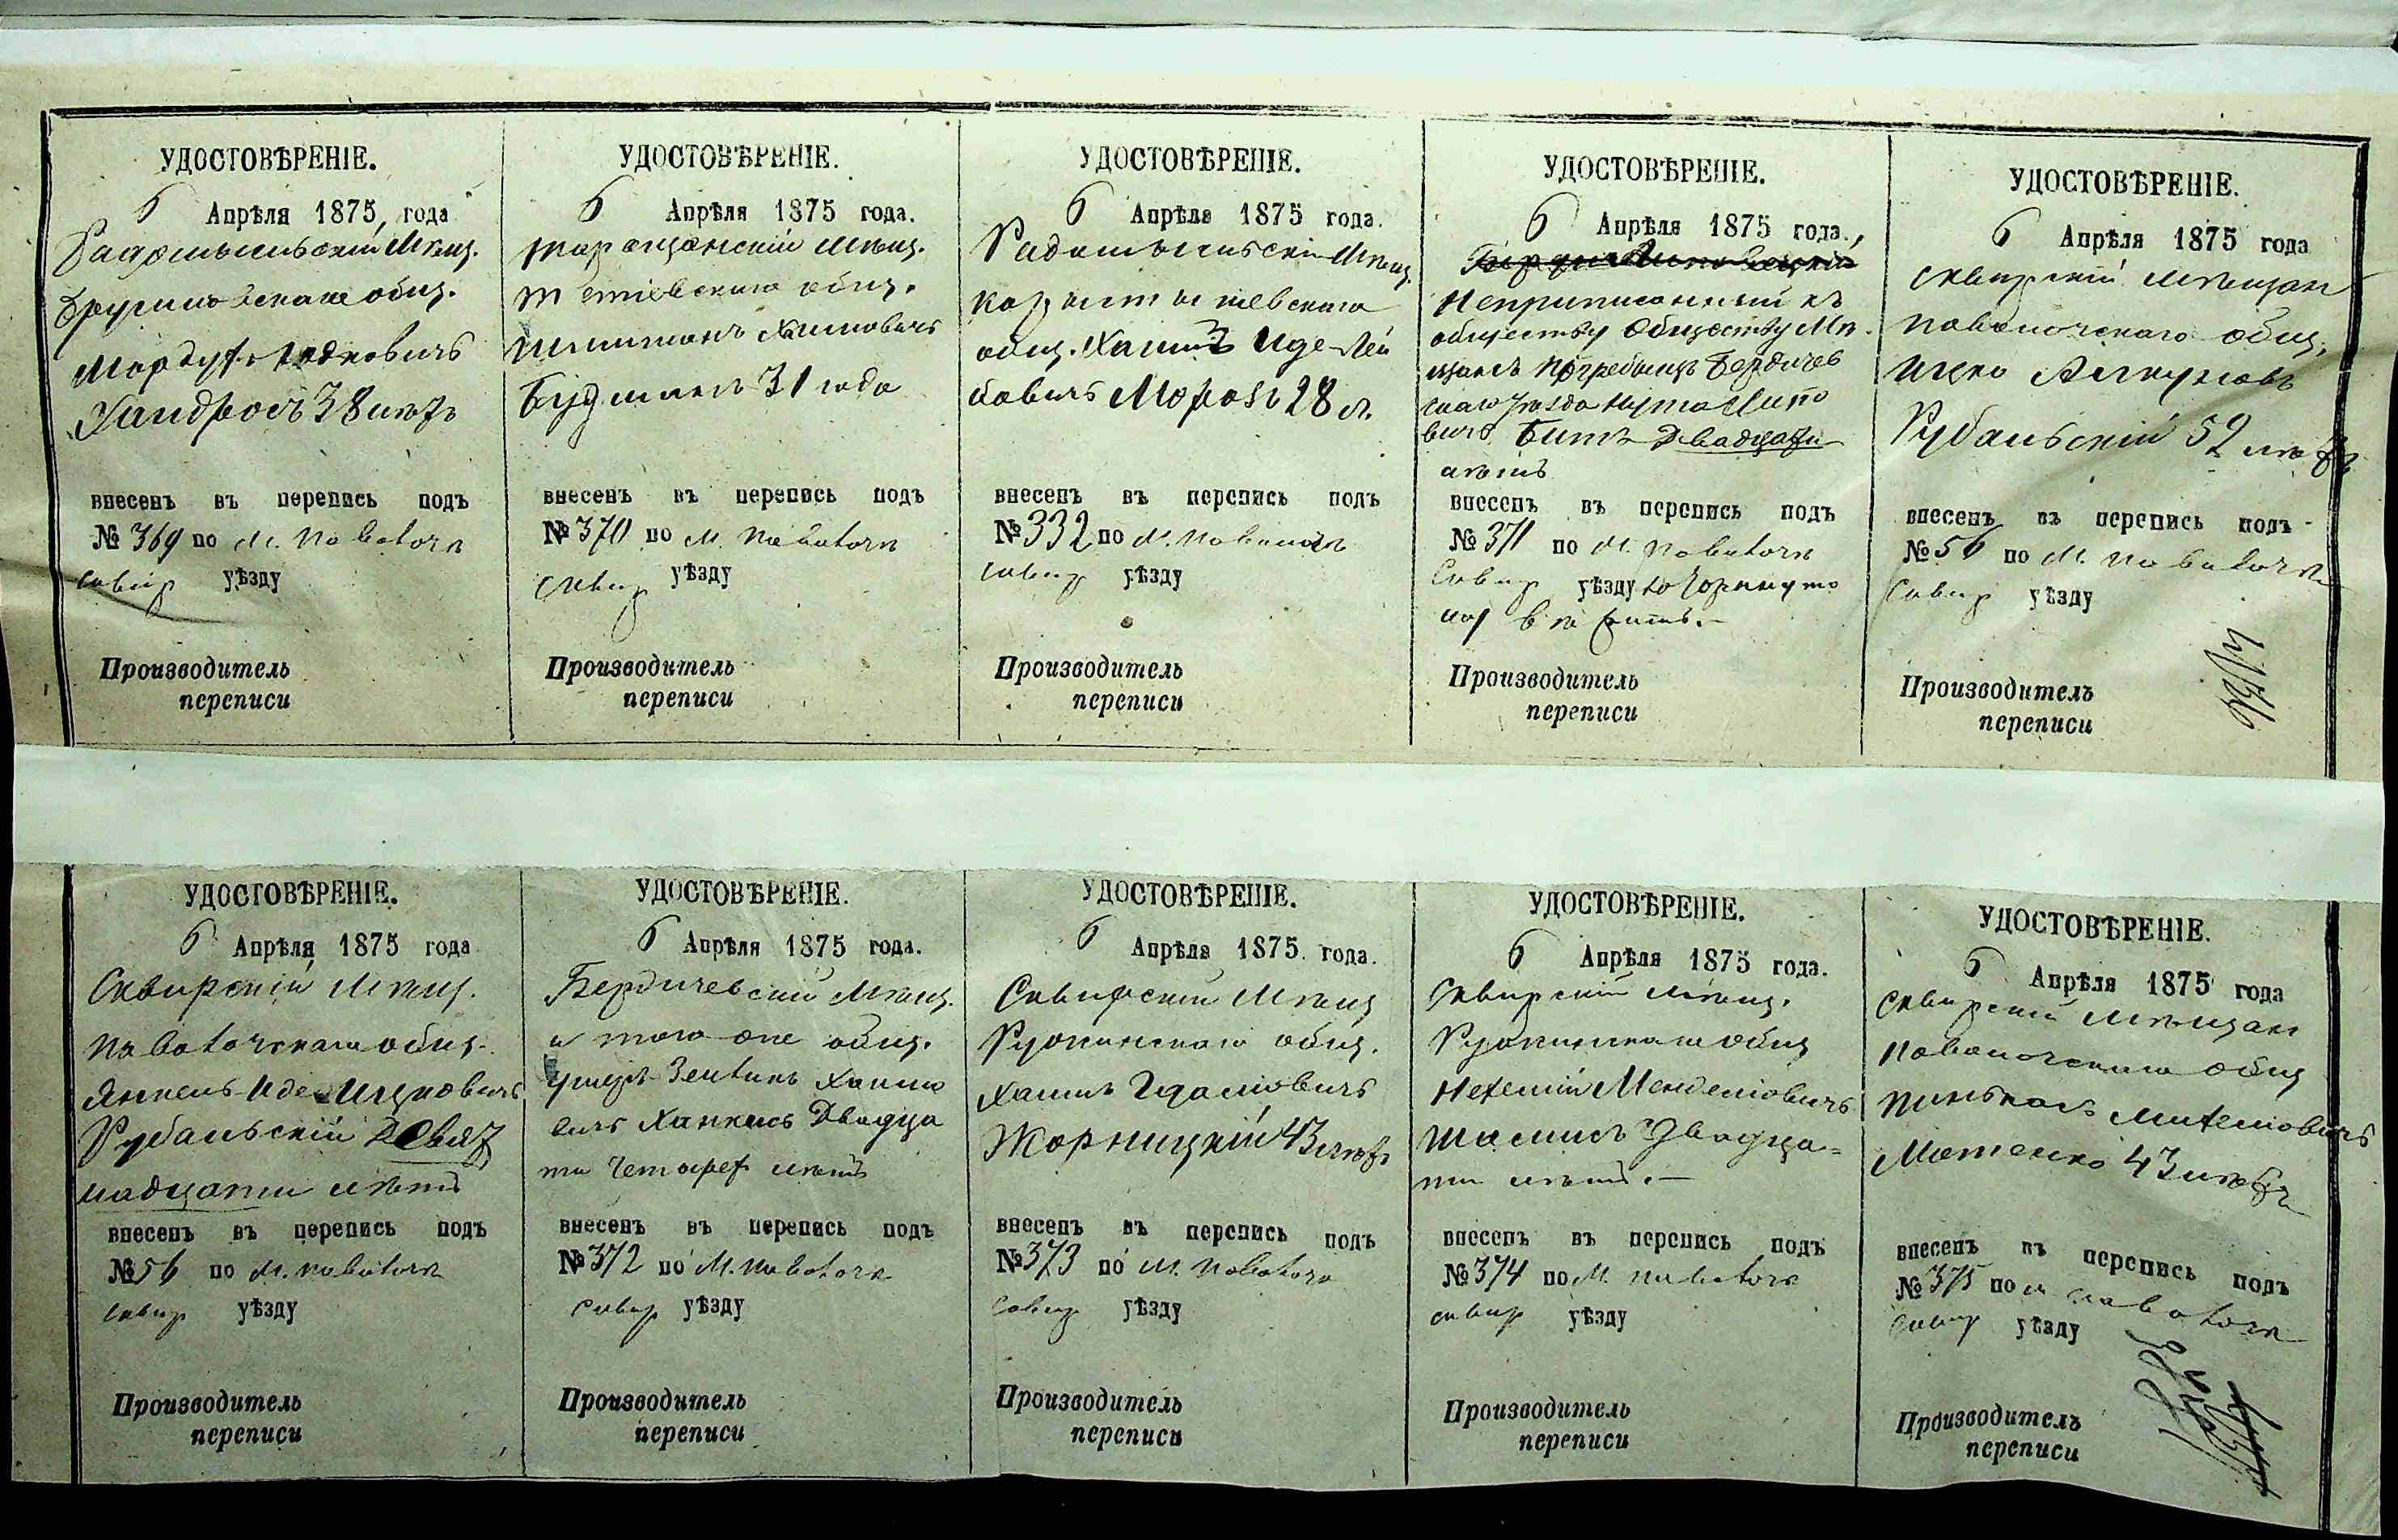 УДОСТОВѢРЕНІЕ.
6 Апрѣля 1875 года
Радомысльскій Мѣщ.
Брусиловскаго общ.
Мордух Іодковичъ
38 лѣтъ
внесенъ въ перепись подъ
№ 369 по М. Паволочи
Сквир уѣзду
Производитель
переписи
УДОСТОВѢРЕНІЕ.
6 Апрѣля 1875 года.
Таращанскій Мѣщ.
Тетіевскаго общ.
Хаимовичъ
31 года
внесенъ въ перепись подъ
№ 370 по М. Паволочи
Сквир уѣзду
Производитель
переписи
УДОСТОВѢРЕНІЕ.
6 Апрѣля 1875 года.
Радомысльскій Мѣщ.
общ. Хаимъ Иде Лей
бовичъ Морозъ 28 л.
внесенъ въ перепись подъ
№ 332 по М. Паволочи
Сквир уѣзду
Производитель
переписи
УДОСТОВѢРЕНІЕ.
6 Апрѣля 1875 года.
Неприписанный къ
обществу Обществу Мѣ
щанъ Погребищъ Бердичев
скаго уѣзда Нута
вичъ Битъ Двадцати
лѣтъ
внесенъ въ перепись подъ
№ 371 по М. Паволочи
Сквир уѣзду
Производитель
переписи
УДОСТОВѢРЕНІЕ.
6 Апрѣля 1875 года
Сквирскій Мѣщан
Паволочскаго общ.
Ицко
Рубальскій 52 лѣтъ
внесенъ въ перепись подъ
№ 56 по М. Паволочи
Сквир уѣзду
Производитель
переписи
УДОСТОВѢРЕНІЕ.
6 Апрѣля 1875 года
Сквирскій Мѣщ.
Паволочскаго общ.
Янкель Иде Ицковичъ
Рубальскій Девят
надцати лѣтъ
внесенъ въ перепись подъ
№ 56 по М. Паволочи
Сквир уѣзду
Производитель
переписи
УДОСТОВѢРЕНІЕ.
6 Апрѣля 1875 года.
Бердичевскій Мѣщ.
и того же общ.
Ушеръ Зеликъ Хаимо
вичъ Ханкись Двадца
ти Четырех лѣтъ
внесенъ въ перепись подъ
№ 372 по М. Паволочи
Сквир уѣзду
Производитель
переписи
УДОСТОВѢРЕНІЕ.
6 Апрѣля 1875 года.
Сквирскій Мѣщ
Ружинскаго общ.
Хаимъ Гдаліовичъ
Жорницкій 43 лѣтъ
внесенъ въ перепись подъ
№ 373 по М. Паволочи
Сквир уѣзду
Производитель
переписи
УДОСТОВѢРЕНІЕ.
6 Апрѣля 1875 года.
Сквирскій Мѣщ.
Ружинскаго общ
Нехемій Менделіовичъ
Двадца-
ти лѣтъ.
внесенъ въ перепись подъ
№ 374 по М. Паволочи
Сквир уѣзду
Производитель
переписи
УДОСТОВѢРЕНІЕ.
6 Апрѣля 1875 года
Сквирскій Мѣщан
Паволочскаго общ
Пинькасъ Михеліовичъ
43 лѣтъ
внесенъ въ перепись подъ
№ 375 по м Паволочи
Сквир уѣзду
Производитель
переписи